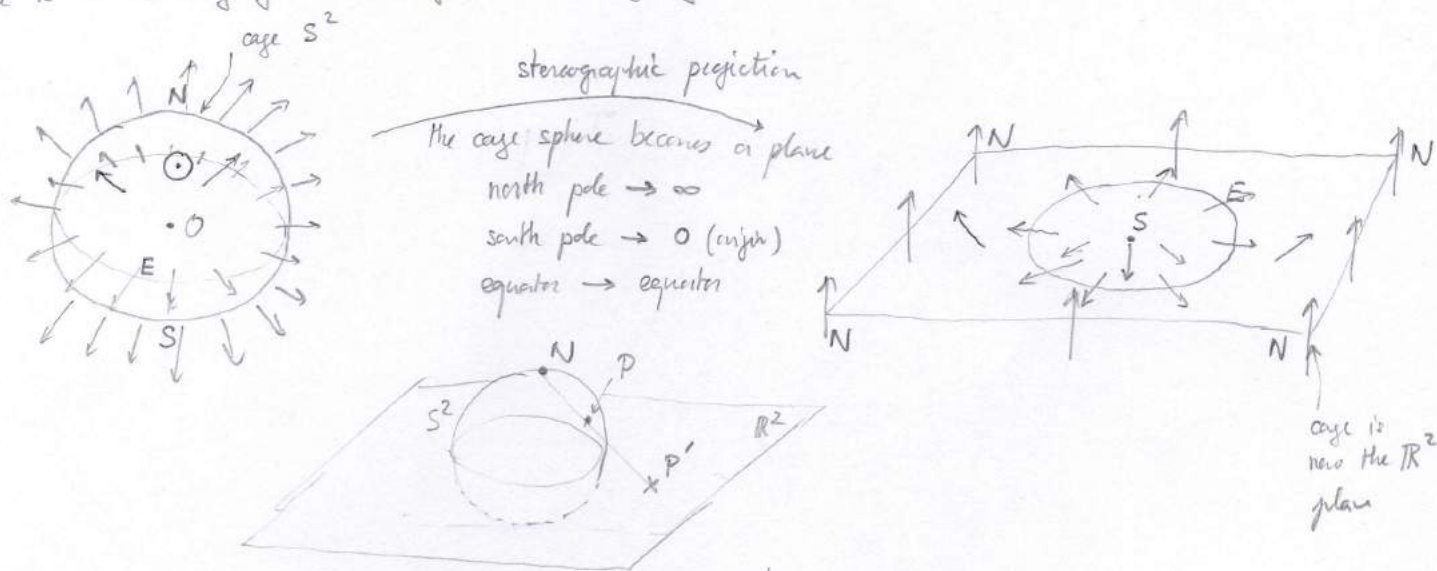 cage S²
stereographic projection
the cage sphere becomes a plane
north pole → ∞
south pole → O (origin)
equator → equator
N
O
E
S
N
N
E
S
N
N
cage is
now the ℝ²
plane
N
P
S²
ℝ²
P′